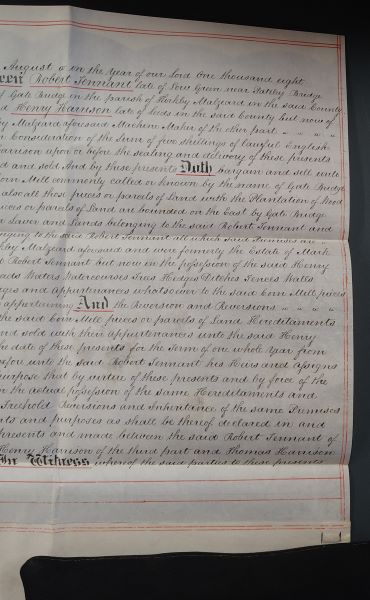 August in the Year of our Lord One thousand eight
Robert Tennant late of Low Green near Pateley Bridge
Gate Bridge in the parish of Kirkby Malzeard in the said County
Henry Harrison late of Leeds in the said County but now of
Malzeard aforesaid Machine Maker of the other part
Consideration of the Sum of five shillings of lawful English
Harrison upon or before the sealing and delivery of these presents
and sold And by these presents Doth bargain and sell unto
Corn Mill commonly called or known by the name of Gate Bridge
also all those pieces or parcels of Land with the Plantation of Wood
or parcels of Land are bounded on the East by Gate Bridge
and Lands belonging to the said Robert Tennant and
to the said Robert Tennant all which said Premises are
Malzeard aforesaid and were formerly the Estate of Mark
Robert Tennant but now in the possession of the said Henry
Waters Watercourses Trees Hedges Ditches Fences Walls
and appurtenances whatsoever to the said Corn Mill pieces
appertaining And the Reversion and Reversions
the said Corn Mill pieces or parcels of Land Hereditaments
sold with their appurtenances unto the said Henry
the date of these presents for the Term of one whole Year from
unto the said Robert Tennant his Heirs and assigns
purpose that by virtue of these presents and by force of the
in the actual possession of the same Hereditaments and
Freehold Reversions and Inheritance of the same Premises
and purposes as shall be thereof declared in and
presents and made between the said Robert Tennant of
Henry Harrison of the third part and Thomas Harrison
In Witness whereof the said parties to these presents